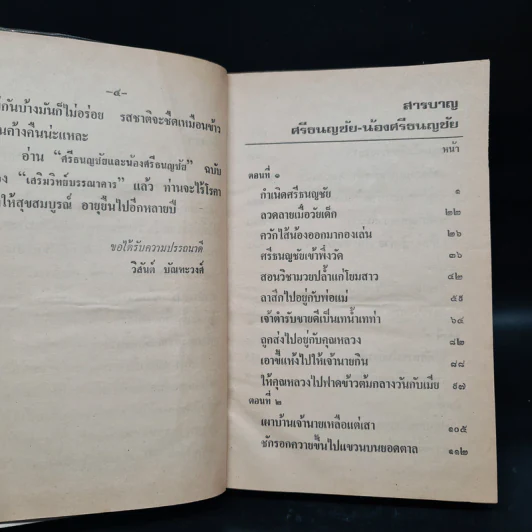 –๔–
กันบ้างมันก็ไม่อร่อย รสชาติจะชืดเหมือนข้าว
ค้างคืนน่ะแหละ
อ่าน “ศรีธนญชัยและน้องศรีธนญชัย” ฉบับ
“เสริมวิทย์บรรณาคาร” แล้ว ท่านจะไร้โรคา
ให้สุขสมบูรณ์ อายุยืนไปอีกหลายปี
ขอได้รับความปรารถนาดี
วิสันต์ บัณฑะวงศ์
สารบาญ
ศรีธนญชัย-น้องศรีธนญชัย
หน้า
ตอนที่ ๑
กำเนิดศรีธนญชัย ๑
ลวดลายเมื่อวัยเด็ก ๒๒
ควักไส้น้องออกมากองเล่น ๒๖
ศรีธนญชัยเข้าพึ่งวัด ๓๖
สอนวิชามวยปล้ำแก่โยมสาว ๔๒
ลาสึกไปอยู่กับพ่อแม่ ๕๑
เจ้าตำรับขายดีเป็นเทน้ำเทท่า ๖๔
ถูกส่งไปอยู่กับคุณหลวง ๘๒
เอาขี้แห้งไปให้เจ้านายกิน ๘๘
ให้คุณหลวงไปฟาดข้าวต้มกลางวันกับเมีย ๙๗
ตอนที่ ๒
เผาบ้านเจ้านายเหลือแต่เสา ๑๐๕
ชักรอกควายขึ้นไปแขวนบนยอดตาล ๑๑๒